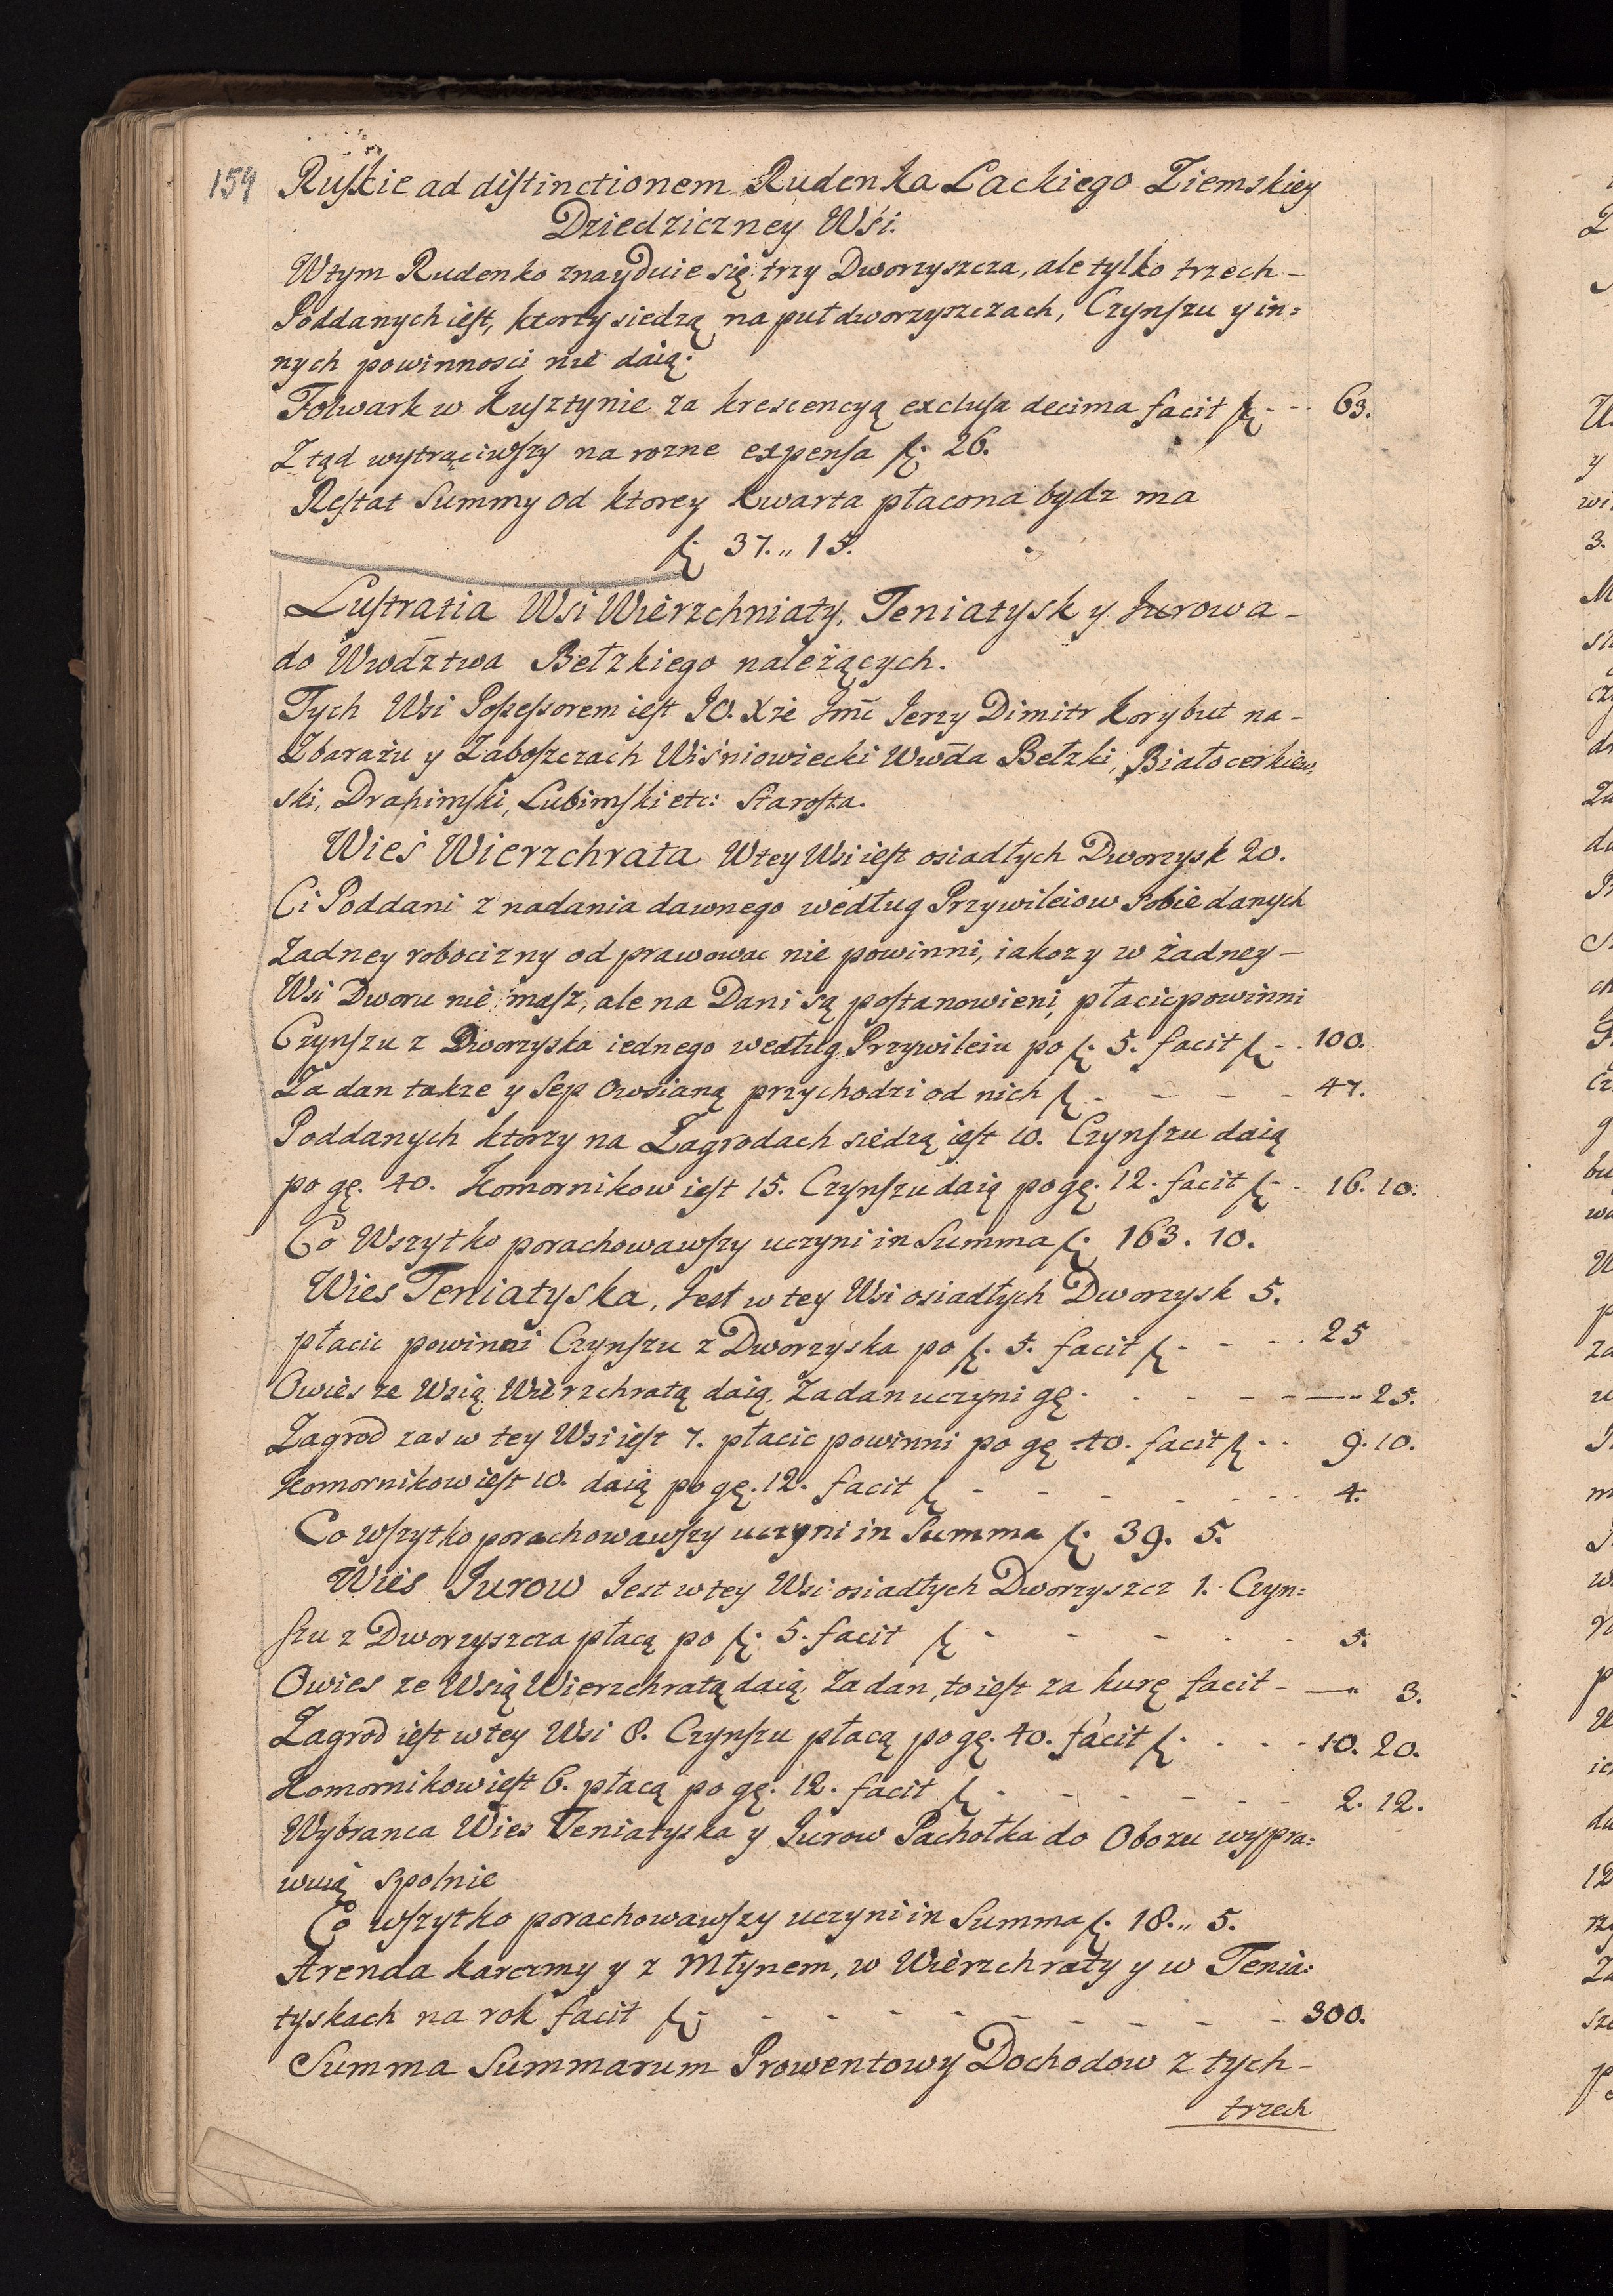 159 Ruſkie ad diſtinctionem Rudenka Lackiego Ziemskiey
Dziedziczney Wśi.
Wtym Rudenko znayduie się trzy Dworzyszcza, ale tylko trzech –
Poddanych ieſt, ktorzy siedzą na puł dworzyszczach, Czynſzu y in=
nych powinnosci nie daią.
Folwark w Huſztynie za krescencyą excluſa decima facit ſ. - - 63.
Ztąd wytrąciwſzy na rozne expenſa ſ. 26.
Reſtat Summy od ktorey kwarta płacona bydz ma
ſ. 37.,, 15.
Luſtratia Wsi Wierzchniaty, Teniatysk y Jurowa –
do Wwdztwa Bełzkiego należących.
Tych Wsi Poſseſsorem ieſt JO. Xże Jmć Jerzy Dimitr Korybut na –
Zbarażu y Zaboſzczach Wiśniowiecki Wwda Bełzki, Białocerkiew,
ski, Drahimſki, Lubimſki etc: Staroſta.
Wieś Wierzchrata Wtey Wsi ieſt osiadłych Dworzysk 20.
Ci Poddani z nadania dawnego według Przywileiow Sobie danych
Zadney robocizny od prawowac nie powinni, iakoz y w żadney –
Wsi Dworu nie maſz, ale na Dani są poſtanowieni, płacic powinni
Czynſzu z Dworzyska iednego według Przywileiu po ſ. 5. facit ſ - . 100.
Za dan takze y Sep Owsianą przychodzi od nich ſ - - - - 47.
Poddanych ktorzy na Zagrodach siedzą ieſt 10. Czynſzu daią
po gę. 40. Komornikow ieſt 15. Czynſzu daią po gę. 12. facit ſ - . 16. 10.
Co Wszytko porachowawſzy uczyni in Summa ſ. 163. 10.
Wies Teniatyska, Jest w tey Wsi osiadłych Dworzysk 5.
płacic powinni Czynſzu z Dworzyska po ſ. 5. facit ſ - - - . 25
Owies ze Wsią Wierzchratą daią. Za dan uczyni gę - - - - — 25.
Zagrod zas w tey Wsi ieſt 7. płacic powinni po gę 40. facit ſ - . 9. 10.
Komornikow ieſt 10. daią po gę. 12. facit ſ - - - - - - 4.
Co wſzytko porachowawſzy uczyni in Summa ſ. 39. 5.
Wies Jurow Jest w tey Wsi osiadłych Dworzyszcz 1. Czyn=
ſzu z Dworzyszcza płacą po ſ. 5. facit ſ - - - - - 5.
Owies ze Wsią Wierzchratą daią, Za dan, to ieſt za kurę facit - — 3.
Zagrod ieſt w tey Wsi 8. Czynſzu płacą po gę. 40. facit ſ. - - - 10. 20.
Komornikow ieſt 6. płacą po gę. 12. facit ſ - - - - - - 2. 12.
Wybranca Wies Teniatyska y Jurow Pachołka do Obozu wypra=
wuią Szpolnie
Co wſzytko porachowawſzy uczyni in Summa ſ. 18.,, 5.
Arenda karczmy y z Młynem, w Wierzchraty y w Tenia=
tyskach na rok facit ſ - - - - - - - - - 300.
Summa Summarum Prowentowy Dochodow z tych –
trzech